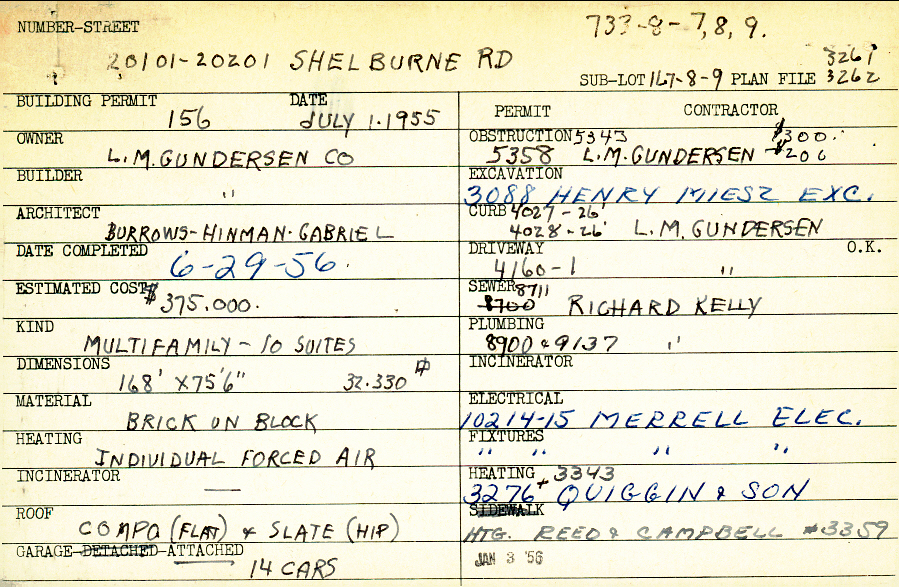 NUMBER-STREET
733-8-7,8,9.
20101-20201 SHELBURNE RD
3261
SUB-LOT 167-8-9 PLAN FILE 3262
BUILDING PERMIT 156 DATE JULY 1.1955
OWNER L.M.GUNDERSEN CO
BUILDER "
ARCHITECT BURROWS-HINMAN-GABRIEL
DATE COMPLETED 6-29-56.
ESTIMATED COST $375,000.
KIND MULTIFAMILY - 10 SUITES
DIMENSIONS 168' X 75'6" 32.330
MATERIAL BRICK ON BLOCK
HEATING INDIVIDUAL FORCED AIR
INCINERATOR —
ROOF COMPO (FLAT) & SLATE (HIP)
GARAGE-DETACHED-ATTACHED 14 CARS
PERMIT CONTRACTOR
OBSTRUCTION 5343 $300.
5358 L.M.GUNDERSEN $200
EXCAVATION
3088 HENRY MIESZ EXC.
CURB 4027-26'
4028-26' L.M.GUNDERSEN
DRIVEWAY O.K.
4160-1 "
SEWER 8711
8700 RICHARD KELLY
PLUMBING
8900 & 9137 "
INCINERATOR
ELECTRICAL
10214-15 MERRELL ELEC.
FIXTURES
" " " "
HEATING + 3343
3276 QUIGGIN & SON
SIDEWALK
HTG. REED & CAMPBELL #3359
JAN 3 '56